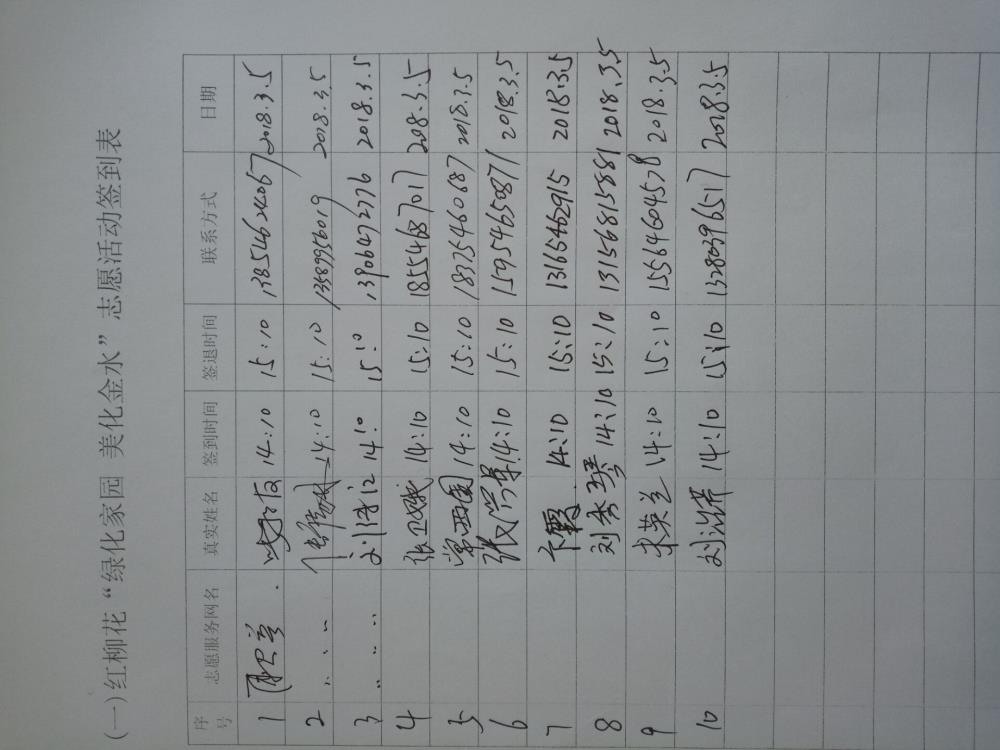 (一)红柳花“绿化家园 美化金水”志愿活动签到表
序号 志愿服务网名 真实姓名 签到时间 签退时间 联系方式 日期
1 14:10 15:10 13854624067 2018.3.5
2 〃 〃 〃 14:10 15:10 13589956019 2018.3.5
3 〃 〃 〃 刘海江 14:10 15:10 13906472776 2018.3.5
4 张卫城 14:10 15:10 18554687017 208.3.5
5 常西国 14:10 15:10 18325460687 2018.3.5
6 14:10 15:10 15954650871 2018.3.5
7 卞霞 14:10 15:10 13615462915 2018.3.5
8 刘秀琴 14:10 15:10 13156815881 2018.3.5
9 宋英兰 14:10 15:10 15564604578 2018.3.5
10 14:10 15:10 13280396517 2018.3.5